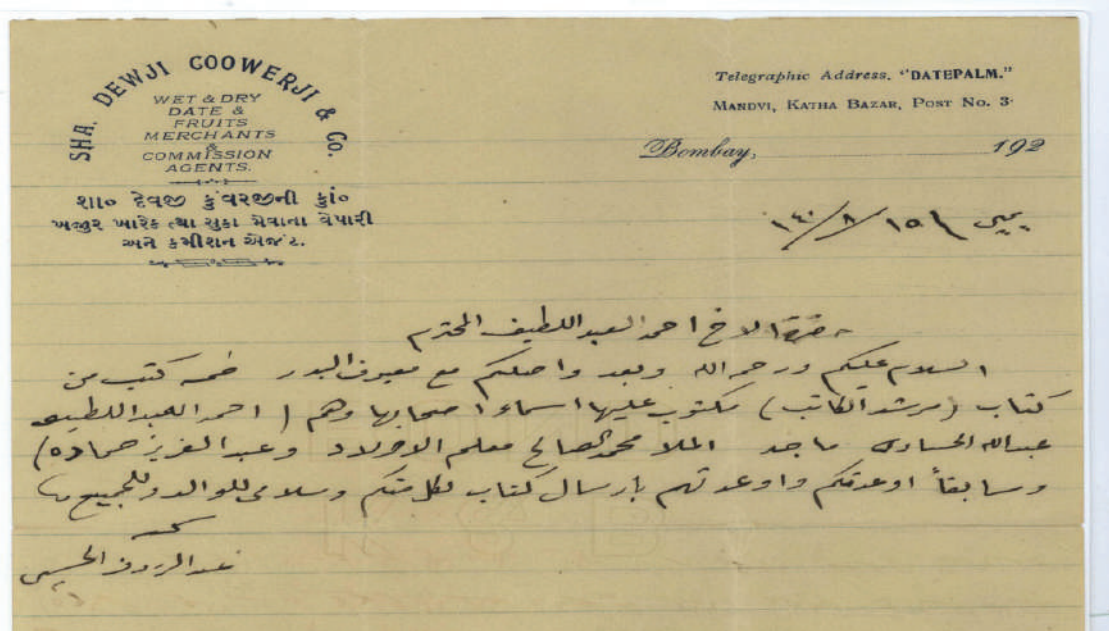 SHA. DEWJI COOWERJI & CO.
WET & DRY
DATE &
FRUITS
MERCHANTS
&
COMMISSION
AGENTS.
શા૦ દેવજી કુંવરજીની કુાં૦
ખજુર ખારેક ત્થા સુકા મેવાના વેપારી
અને કમીશન એજંટ.
Telegraphic Address. "DATEPALM."
MANDVI, KATHA BAZAR, POST NO. 3.
Bombay, 192
١٥/٨/١٤٠
الاخ احمد العبد اللطيف المحترم
السلام عليكم ورحمة الله وبعد واصلكم مع معيوف البدر خمسة كتب من
كتاب (مرشد الكاتب) مكتوب عليها اسماء اصحابها وهم (احمد العبد اللطيف
عبدالله الحساوي ماجد الملا محمد الصالح معلم الاولاد وعبد العزيز حماده)
وسابقاً اوعدتكم واوعدتهم بارسال كتاب لكل منكم وسلامي للوالد وللجميع
عبد الرزاق